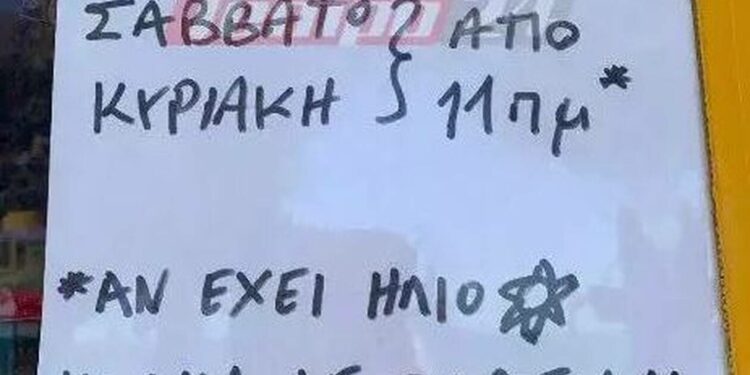 ΣΑΒΒΑΤΟ } ΑΠΟ
ΚΥΡΙΑΚΗ } 11πμ*
*ΑΝ ΕΧΕΙ ΗΛΙΟ